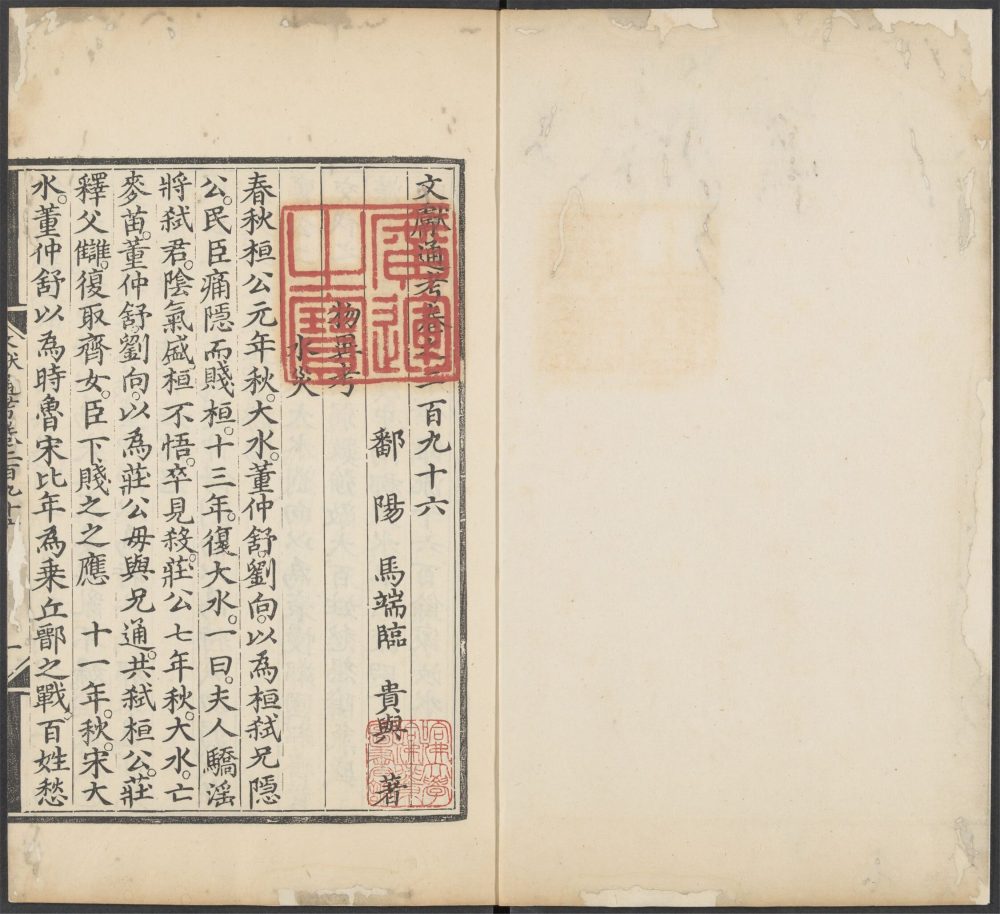 文獻通考卷之二百九十六
鄱陽 馬端臨 貴與 著
物異考
水災
春秋桓公元年秋。大水。董仲舒。劉向。以為桓弒兄隱
公。民臣痛隱而賤桓。十三年。復大水。一曰。夫人驕淫
將弒君。陰氣盛。桓不悟。卒見殺。莊公七年。秋。大水。亡
麥苗。董仲舒。劉向。以為莊公毋與兄通。共弒桓公。莊
釋父讎。復取齊女。臣下賤之之應 十一年。秋。宋大
水。董仲舒以為時魯宋比年為乗丘鄑之戰百姓愁
廣運之寶